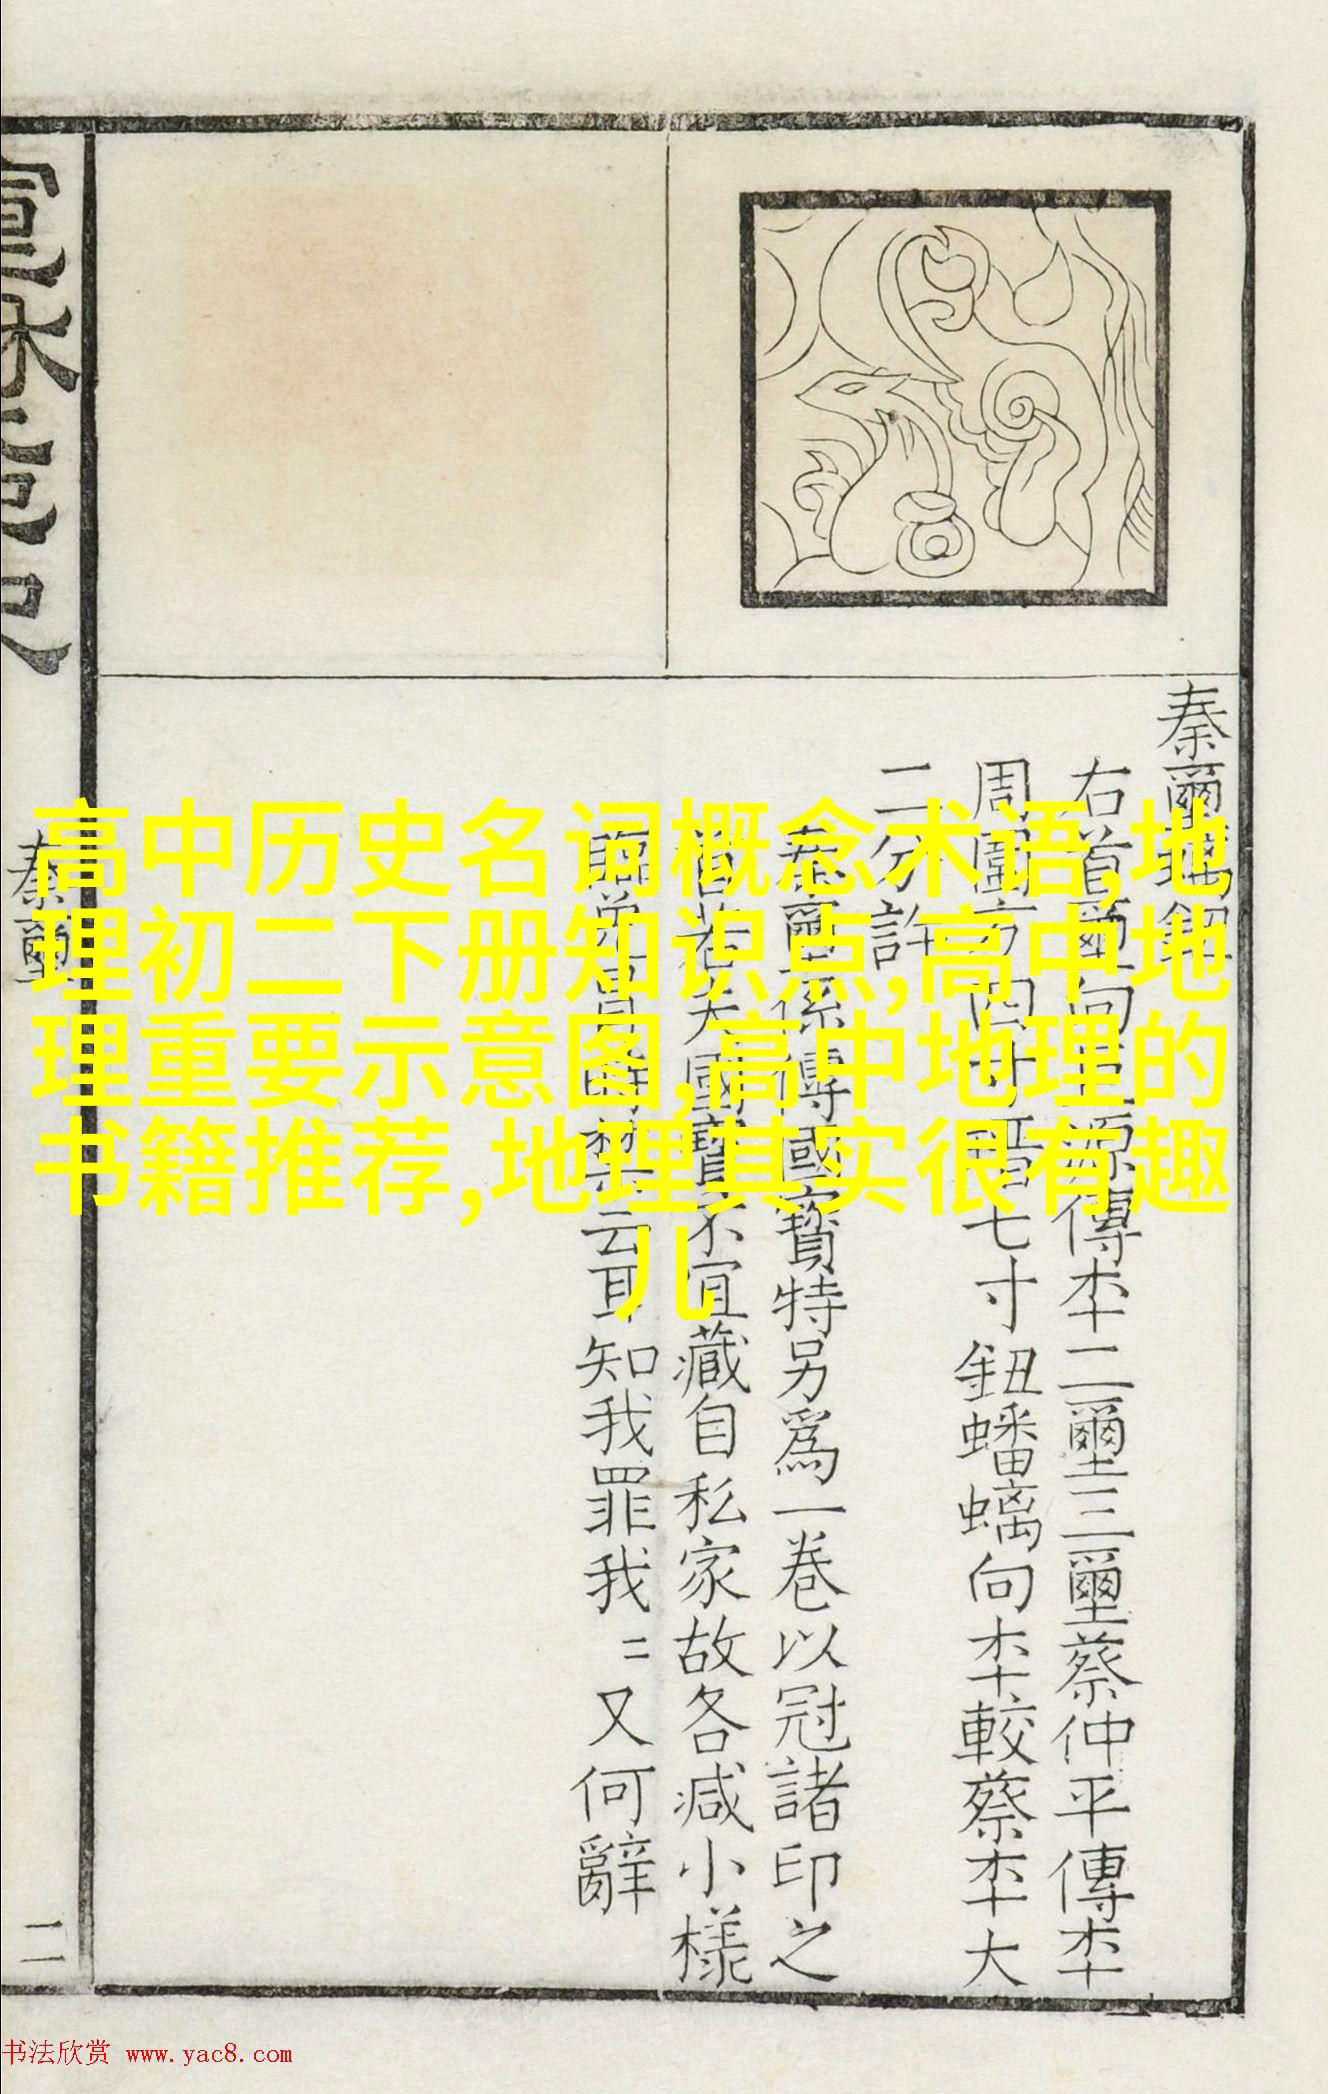 高中历史名词概念术语,地
理初二下册知识点,高中地
理重要示意图,高中地理的
书籍推荐,地理其实很有趣
儿
秦璽螭鈕
右首璽向巨源傳本二璽三璽蔡仲平傳本
周圍方四寸 七寸鈕蟠螭向本較蔡本大
二分許
秦璽係傳國寶特另為一卷以冠諸印之
國寶不宜藏自私家故各減小樣
云耳知我罪我〻又何辭
秦璽
二
书法欣赏 www.yac8.com